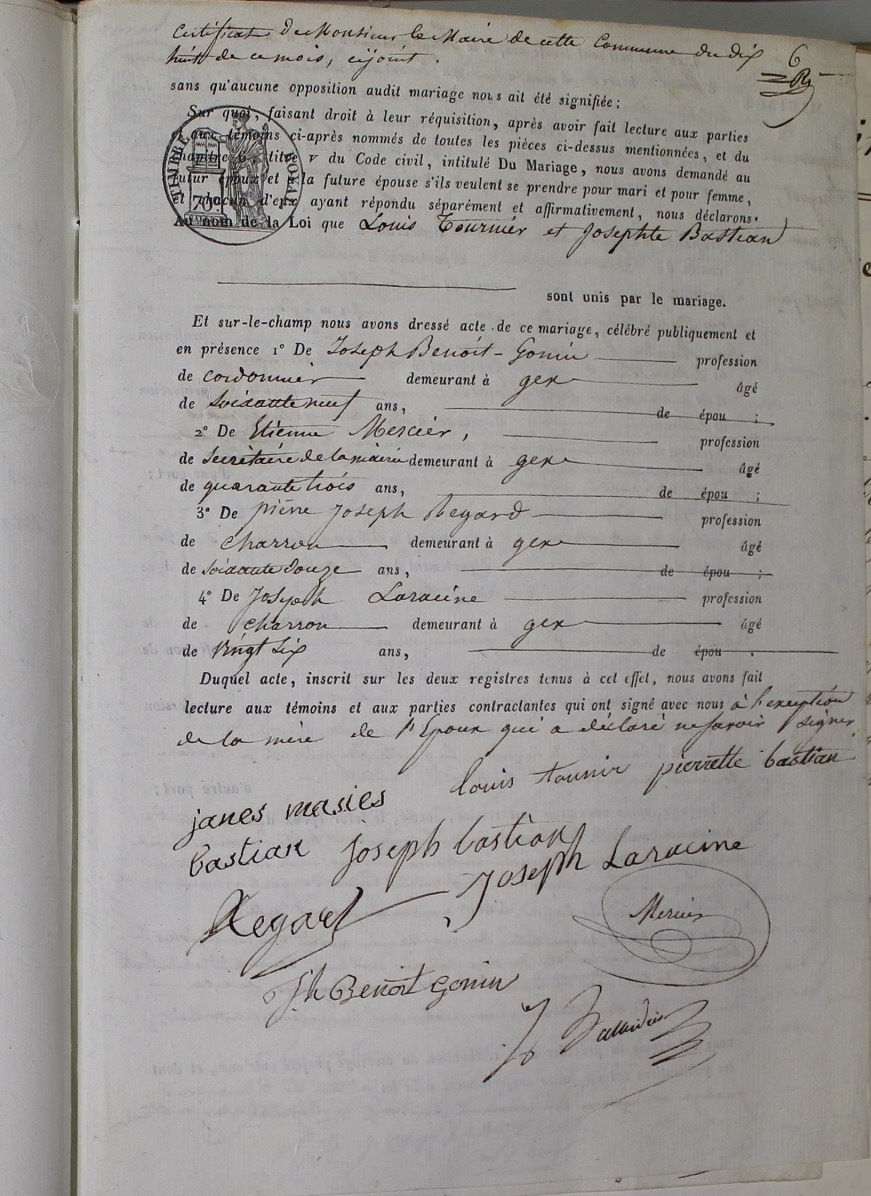 certificat de Monsieur le Maire de cette Commune du dix
huit de ce mois, cijoint.
6
sans qu'aucune opposition audit mariage nous ait été signifiée ;
Sur quoi, faisant droit à leur réquisition, après avoir fait lecture aux parties
et aux témoins ci-après nommés de toutes les pièces ci-dessus mentionnées, et du
chapitre 6, titre V du Code civil, intitulé Du Mariage, nous avons demandé au
futur époux et à la future épouse s'ils veulent se prendre pour mari et pour femme,
et chacun d'eux ayant répondu séparément et affirmativement, nous déclarons,
Au nom de la Loi que Louis Tournier et Josephte Bastian
TIMBRE ROYAL
sont unis par le mariage.
Et sur-le-champ nous avons dressé acte de ce mariage, célébré publiquement et
en présence 1° De Joseph Benoit-Gonin profession
de cordonnier demeurant à gex âgé
de soixante neuf ans, de épou ;
2° De Etienne Mercier, profession
de secrétaire de la mairie demeurant à gex âgé
de quarante trois ans, de épou ;
3° De pierre Joseph Regard profession
de charron demeurant à gex âgé
de soixante douze ans, de épou ;
4° De Joseph Laracine profession
de charron demeurant à gex âgé
de vingt six ans, de épou .
Duquel acte, inscrit sur les deux registres tenus à cet effet, nous avons fait
lecture aux témoins et aux parties contractantes qui ont signé avec nous à l'exception
de la mère de l'Epoux qui a déclaré ne savoir signer
louis tournir pierrette bastian
janes masies
bastian joseph bastian
Joseph Laracine
Regard
Mercier
Jh Benoit Gonin